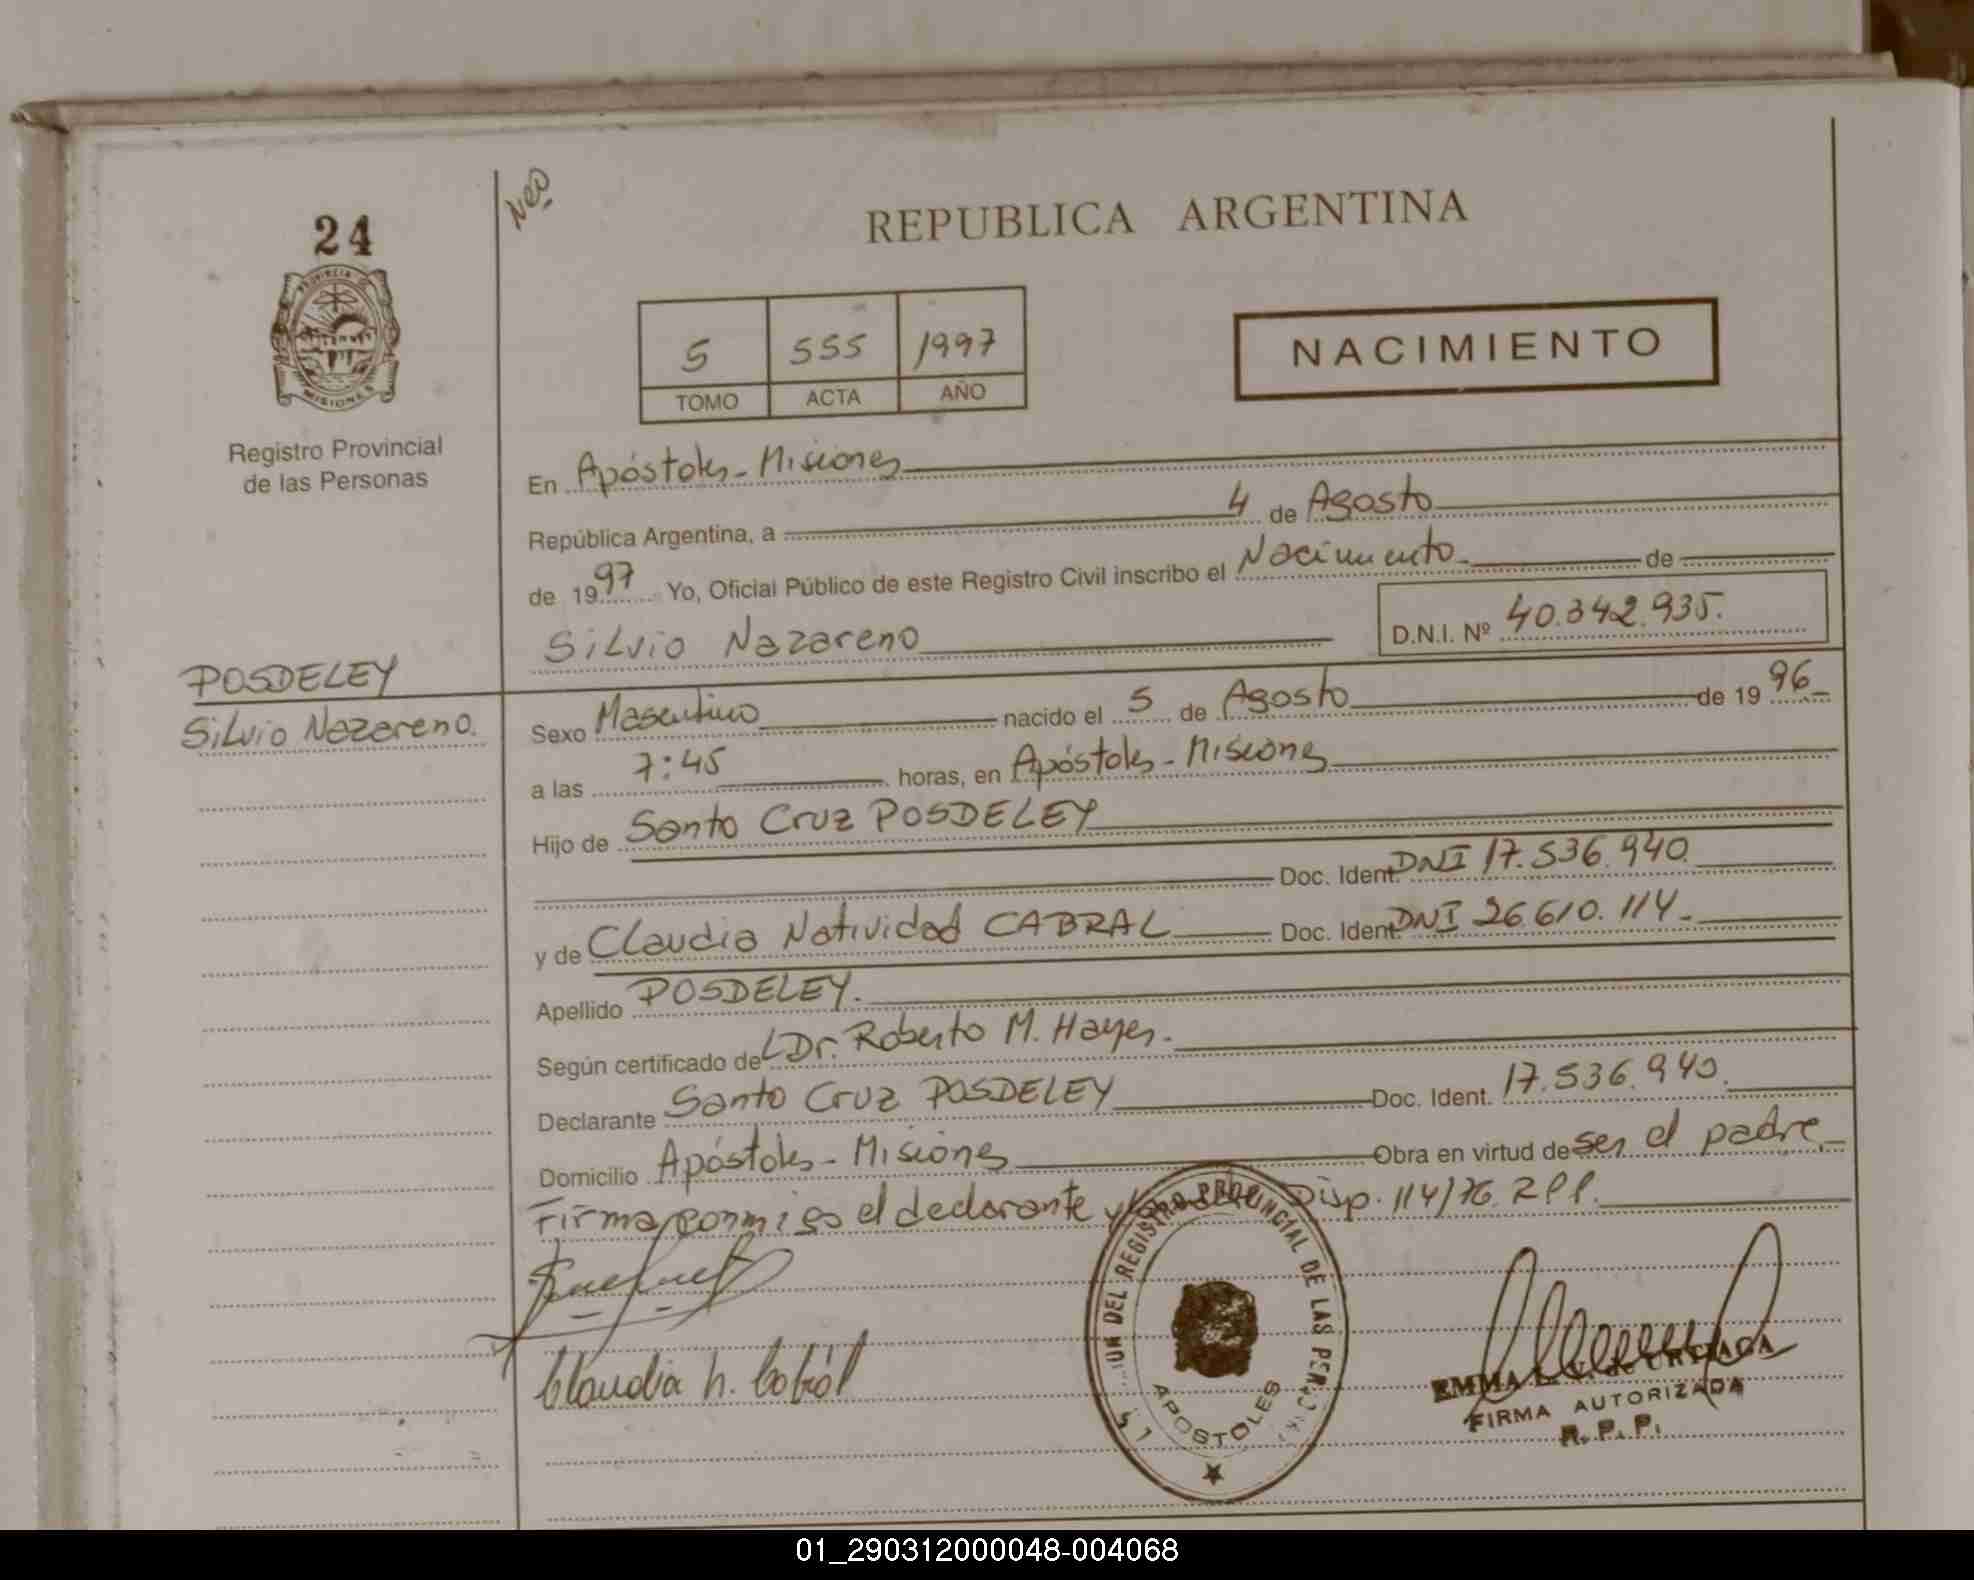 24
Neo
REPUBLICA ARGENTINA
PROVINCIA DE
MISIONES
Registro Provincial
de las Personas
5 555 1997
TOMO ACTA AÑO
NACIMIENTO
En Apóstoles - Misiones
República Argentina, a 4 de Agosto
de 1997 Yo, Oficial Público de este Registro Civil inscribo el Nacimiento de
Silvio Nazareno D.N.I. Nº 40.342.935.
POSDELEY
Silvio Nazareno.
Sexo Masculino nacido el 5 de Agosto de 1996
a las 7:45 horas, en Apóstoles - Misiones
Hijo de Santo Cruz POSDELEY
Doc. Ident. DNI 17.536.940.
y de Claudia Natividad CABRAL Doc. Ident. DNI 26.610.114.
Apellido POSDELEY.
Según certificado del Dr. Roberto M. Hayes.
Declarante Santo Cruz POSDELEY Doc. Ident. 17.536.940.
Domicilio Apóstoles - Misiones Obra en virtud de ser el padre
Firma conmigo el declarante y Disp. 114/76. RPP.
Claudia N. Cabral
DEL REGISTRO PROVINCIAL DE LAS PERSONAS
APOSTOLES
EMMA URTIAGA
FIRMA AUTORIZADA
R. P. P.
01_290312000048-004068